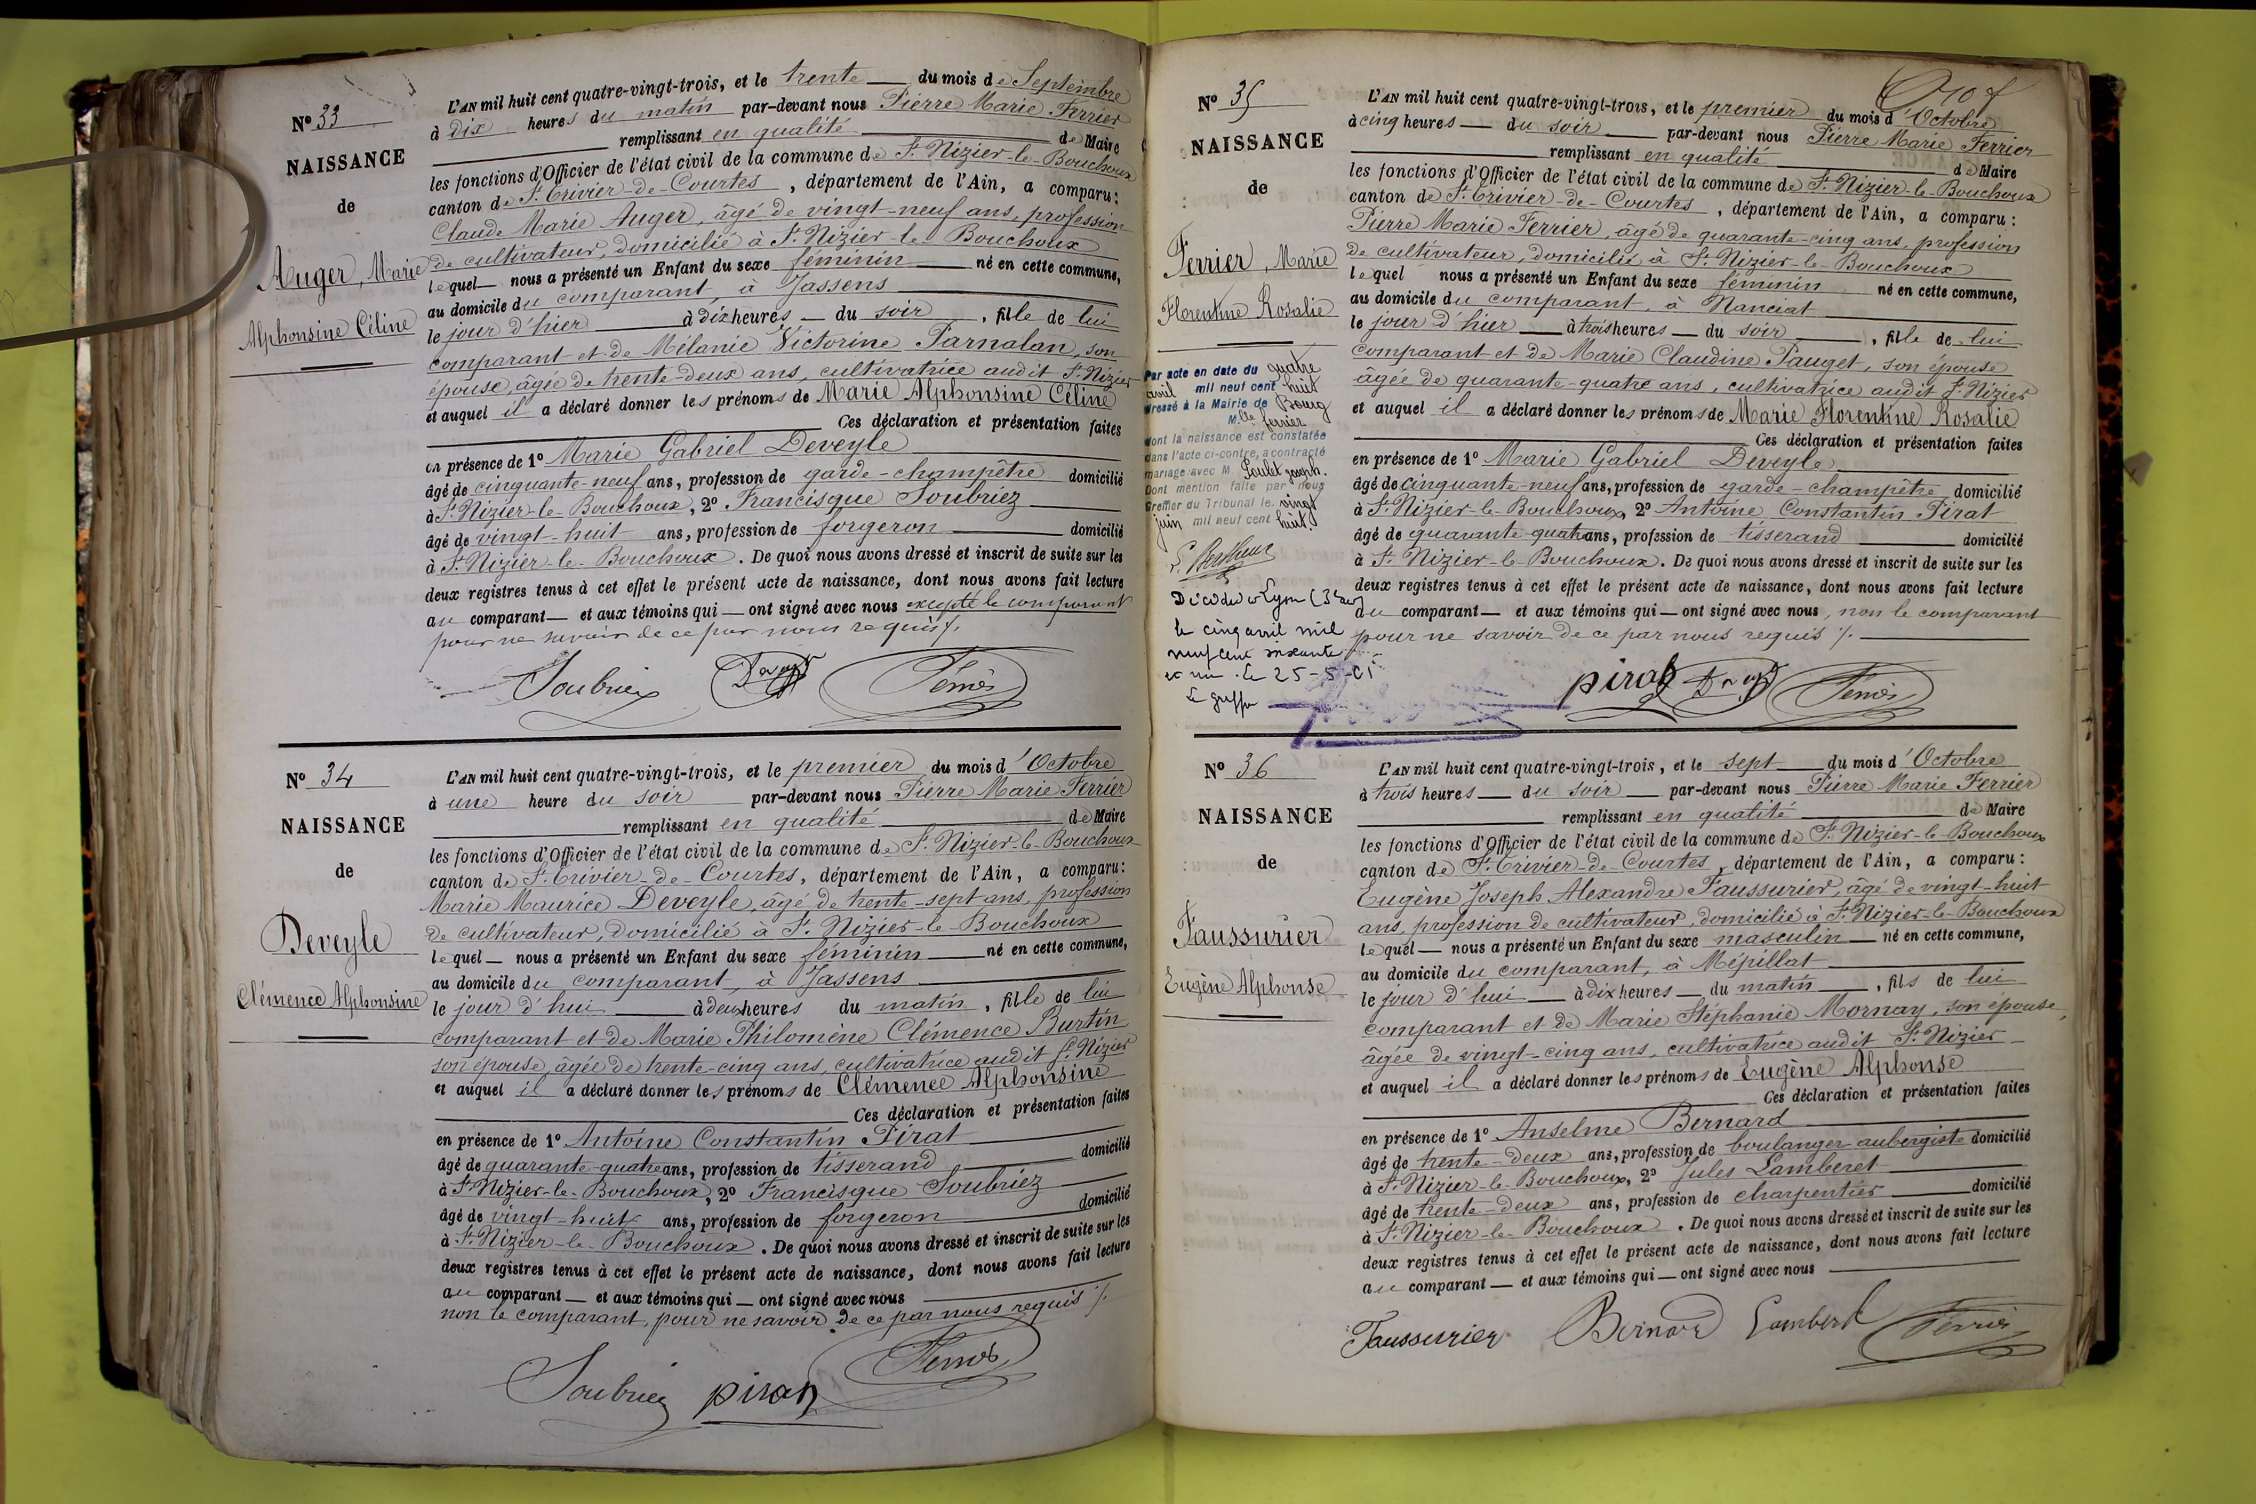 N° 33
NAISSANCE
de
Auger, Marie
Alphonsine Céline
L'AN mil huit cent quatre-vingt-trois, et le trente du mois de Septembre
à dix heures du matin par-devant nous Pierre Marie Ferrier
remplissant en qualité de Maire
les fonctions d'Officier de l'état civil de la commune de St Nizier-le-Bouchoux
canton de St Trivier-de-Courtes, département de l'Ain, a comparu:
Claude Marie Auger, âgé de vingt-neuf ans, profession
de cultivateur, domicilié à St Nizier-le-Bouchoux
lequel nous a présenté un Enfant du sexe féminin né en cette commune,
au domicile du comparant, à Jassens
le jour d'hier à dix heures du soir, fille de lui
comparant et de Mélanie Victorine Parnalan, son
épouse, âgée de trente-deux ans, cultivatrice audit St Nizier
et auquel il a déclaré donner les prénoms de Marie Alphonsine Céline
Ces déclaration et présentation faites
en présence de 1° Marie Gabriel Deveyle
âgé de cinquante-neuf ans, profession de garde-champêtre domicilié
à St Nizier-le-Bouchoux, 2° Francisque Soubriez
âgé de vingt-huit ans, profession de forgeron domicilié
à St Nizier-le-Bouchoux. De quoi nous avons dressé et inscrit de suite sur les
deux registres tenus à cet effet le présent acte de naissance, dont nous avons fait lecture
au comparant et aux témoins qui ont signé avec nous excepté le comparant
pour ne savoir de ce par nous requis /.
Soubriez
N° 34
NAISSANCE
de
Deveyle
Clémence Alphonsine
L'AN mil huit cent quatre-vingt-trois, et le premier du mois d'Octobre
à une heure du soir par-devant nous Pierre Marie Ferrier
remplissant en qualité de Maire
les fonctions d'Officier de l'état civil de la commune de St Nizier-le-Bouchoux
canton de St Trivier-de-Courtes, département de l'Ain, a comparu:
Marie Maurice Deveyle, âgé de trente-sept ans, profession
de cultivateur, domicilié à St Nizier-le-Bouchoux
lequel nous a présenté un Enfant du sexe féminin né en cette commune,
au domicile du comparant, à Jassens
le jour d'hui à deux heures du matin, fille de lui
comparant et de Marie Philomène Clémence Burtin
son épouse, âgée de trente-cinq ans, cultivatrice audit St Nizier
et auquel il a déclaré donner les prénoms de Clémence Alphonsine
Ces déclaration et présentation faites
en présence de 1° Antoine Constantin Pirat
âgé de quarante-quatre ans, profession de tisserand domicilié
à St Nizier-le-Bouchoux, 2° Francisque Soubriez
âgé de vingt-huit ans, profession de forgeron domicilié
à St Nizier-le-Bouchoux. De quoi nous avons dressé et inscrit de suite sur les
deux registres tenus à cet effet le présent acte de naissance, dont nous avons fait lecture
au comparant et aux témoins qui ont signé avec nous
non le comparant, pour ne savoir de ce par nous requis /.
Soubriez pirat Ferrier
N° 35
NAISSANCE
de
Ferrier, Marie
Florentine Rosalie
Par acte en date du quatre
avril mil neuf cent huit
dressé à la Mairie de Bourg
Mlle ferrier
dont la naissance est constatée
dans l'acte ci-contre, a contracté
mariage avec M. Poulet joseph.
Dont mention faite par nous
Greffier du Tribunal le vingt
juin mil neuf cent huit.
Décédée à Lyon
le cinq avril mil
neuf cent soixante
et un. Le 25-5-61
Le greffier
L'AN mil huit cent quatre-vingt-trois, et le premier du mois d'Octobre
à cinq heures du soir par-devant nous Pierre Marie Ferrier
remplissant en qualité de Maire
les fonctions d'Officier de l'état civil de la commune de St Nizier-le-Bouchoux
canton de St Trivier-de-Courtes, département de l'Ain, a comparu:
Pierre Marie Ferrier, âgé de quarante-cinq ans, profession
de cultivateur, domicilié à St Nizier-le-Bouchoux
lequel nous a présenté un Enfant du sexe féminin né en cette commune,
au domicile du comparant, à Nanciat
le jour d'hier à trois heures du soir, fille de lui
comparant et de Marie Claudine Pauget, son épouse
âgée de quarante-quatre ans, cultivatrice audit St Nizier
et auquel il a déclaré donner les prénoms de Marie Florentine Rosalie
Ces déclaration et présentation faites
en présence de 1° Marie Gabriel Deveyle
âgé de cinquante-neuf ans, profession de garde-champêtre domicilié
à St Nizier-le-Bouchoux, 2° Antoine Constantin Pirat
âgé de quarante-quatre ans, profession de tisserand domicilié
à St Nizier-le-Bouchoux. De quoi nous avons dressé et inscrit de suite sur les
deux registres tenus à cet effet le présent acte de naissance, dont nous avons fait lecture
au comparant et aux témoins qui ont signé avec nous, non le comparant
pour ne savoir de ce par nous requis /.
pirat
N° 36
NAISSANCE
de
Faussurier
Eugène Alphonse
L'AN mil huit cent quatre-vingt-trois, et le sept du mois d'Octobre
à trois heures du soir par-devant nous Pierre Marie Ferrier
remplissant en qualité de Maire
les fonctions d'Officier de l'état civil de la commune de St Nizier-le-Bouchoux
canton de St Trivier-de-Courtes, département de l'Ain, a comparu:
Eugène Joseph Alexandre Faussurier, âgé de vingt-huit
ans, profession de cultivateur, domicilié à St Nizier-le-Bouchoux
lequel nous a présenté un Enfant du sexe masculin né en cette commune,
au domicile du comparant, à Mépillat
le jour d'hui à dix heures du matin, fils de lui
comparant et de Marie Stéphanie Mornay, son épouse,
âgée de vingt-cinq ans, cultivatrice audit St Nizier
et auquel il a déclaré donner les prénoms de Eugène Alphonse
Ces déclaration et présentation faites
en présence de 1° Anselme Bernard
âgé de trente-deux ans, profession de boulanger aubergiste domicilié
à St Nizier-le-Bouchoux, 2° Jules Lamberet
âgé de trente-deux ans, profession de charpentier domicilié
à St Nizier-le-Bouchoux. De quoi nous avons dressé et inscrit de suite sur les
deux registres tenus à cet effet le présent acte de naissance, dont nous avons fait lecture
au comparant et aux témoins qui ont signé avec nous
Faussurier Bernard Lamberet Ferrier